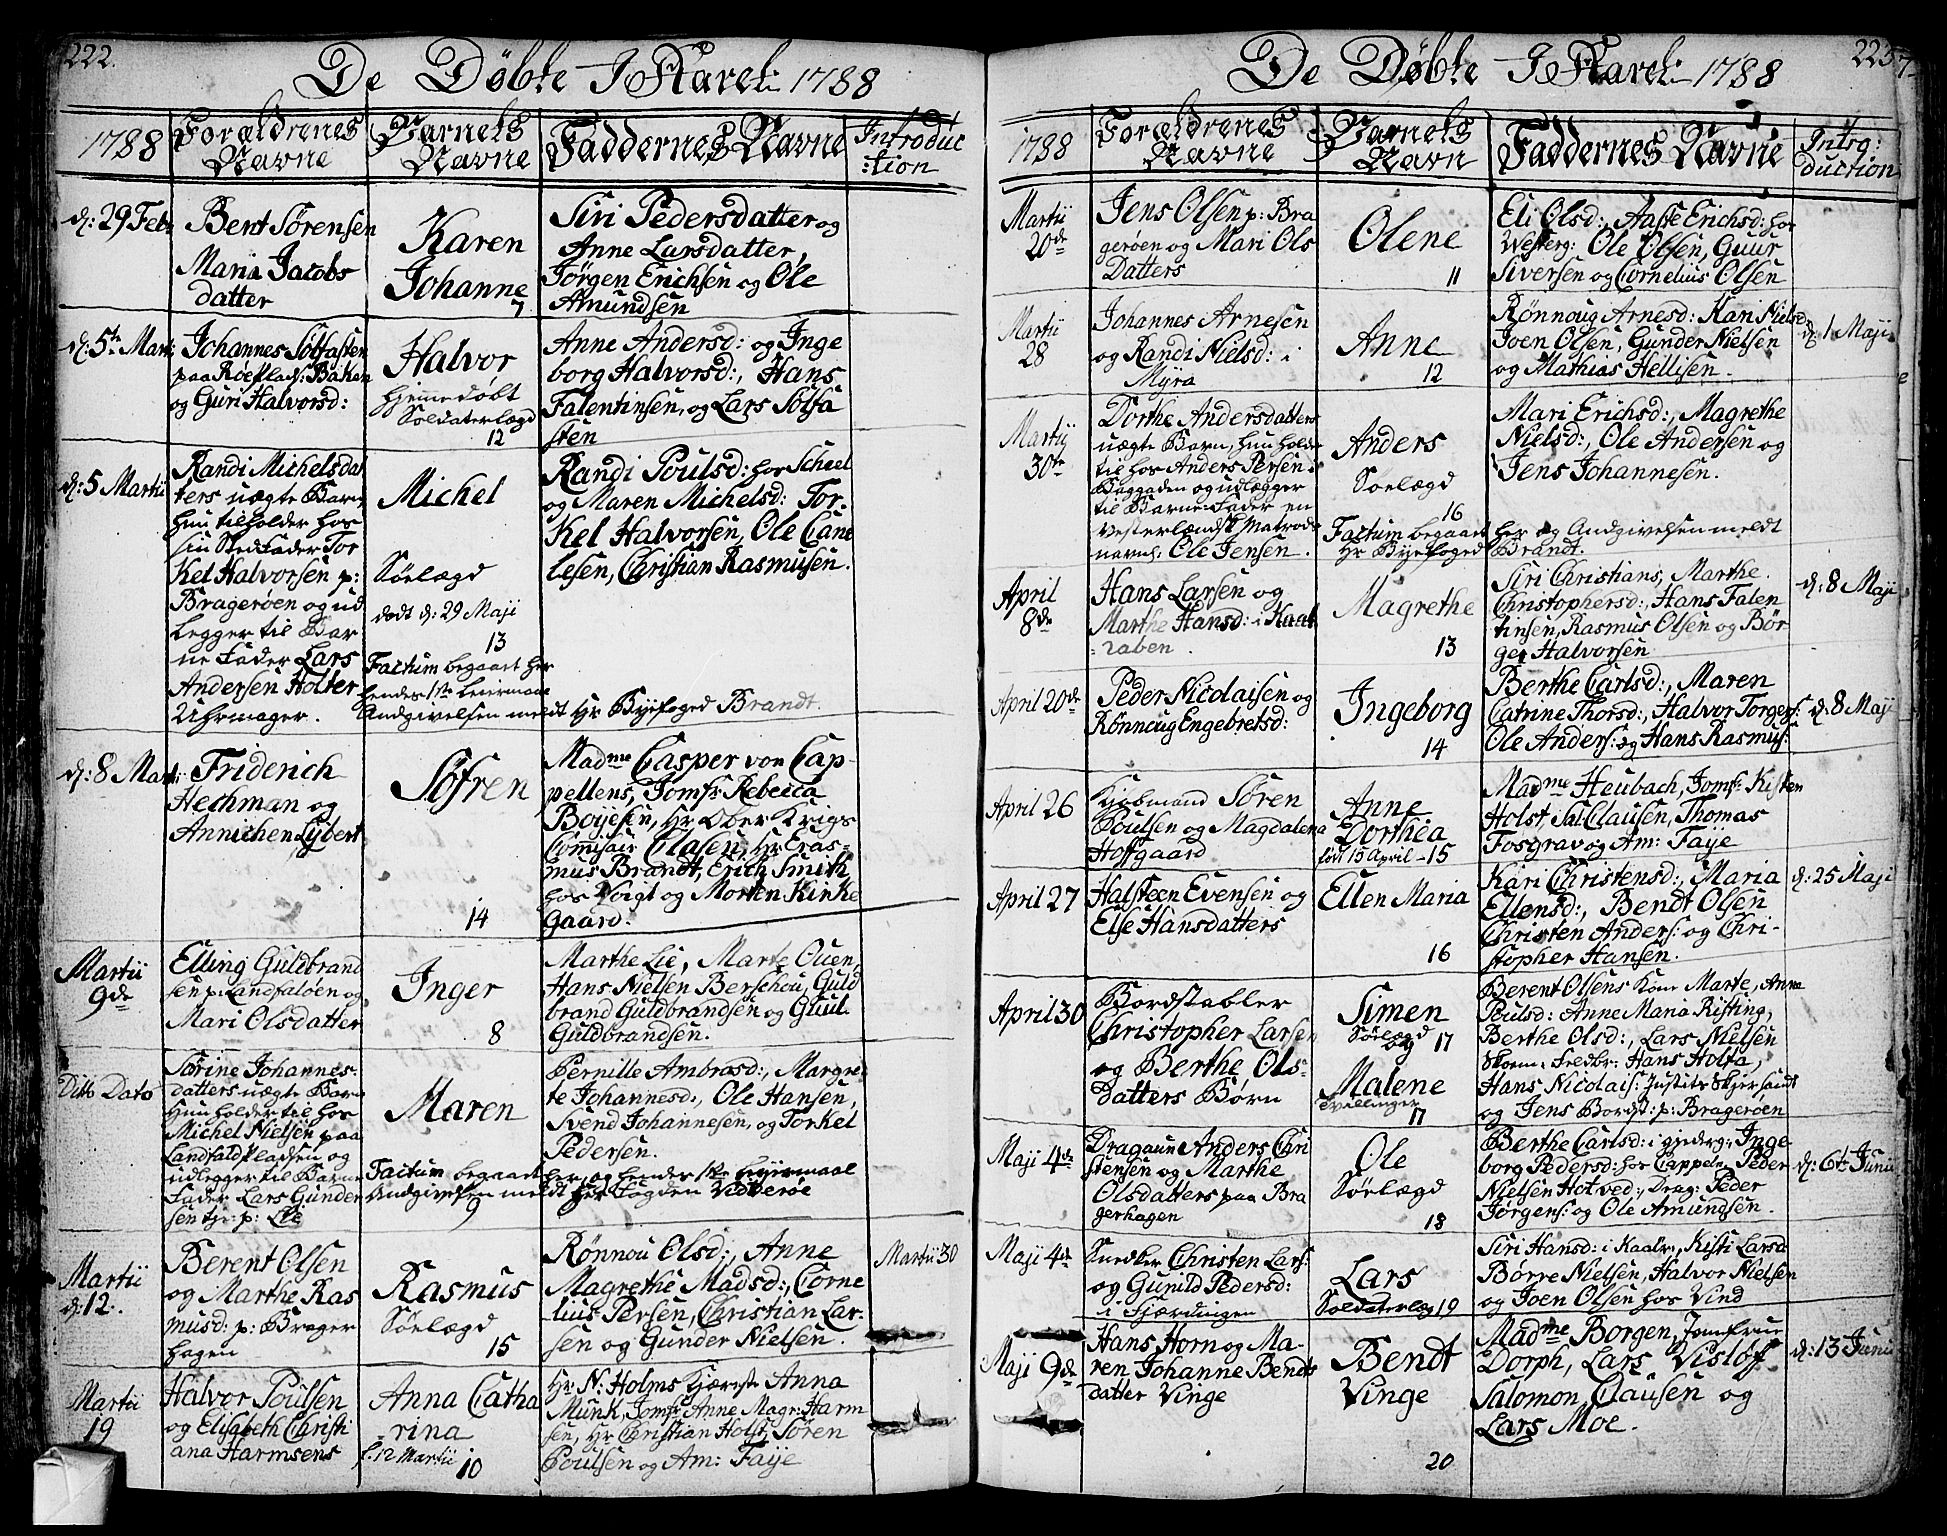 222.
De Döbte I Aaret: 1788
1788
Forældrenes Navne
Barnets Navne
Faddernes Navne
Introduc:tion
d: 29 Feb:
Bent Sørensen
Maria Jacobs
datter
Karen
Johanne
7
Siri Pedersdatter og
Anne Larsdatter,
Jørgen Erichsen og Ole
Amundsen
d: 5te Mart:
Johannes Sølfasten
paa Roepladsen: Baken
og Guri Halvorsd:
Halvor
hjemmedøbt
Soldaterlægd
12
Anne Andersd: og Inge
borg Halvorsd:, Hans
Falentinsen, og Lars Solfa
sten
d: 5 Martii
Randi Michelsdat
ters uægte Barn,
hun tilholder hos
sin Stedfader Tor
kel Halvorsen p:
Bragerøen og ud
legger til Bar
ne Fader Lars
Andersen Holter
Uhrmager.
Michel
Søelægd
dødt d: 29 Maji
13
Factum begaaet her
hendes 1ste Leiermaal
Andgivelsen meldt Hr Byefoged Brandt.
Randi Poulsd: hos Scheel
og Maren Michelsd: Tor-
kel Halvorsen, Ole Dane
lesen, Christian Rasmusen.
d: 8 Mart:
Friderich
Hechman og
Annichen Lybert
Söfren
14
Madme Casper von Cap-
pellens, Jomfr Rebecca
Boyesen, Hr Ober Krigs
Comisair Clasen, Hr Eras-
mus Brandt, Erich Smith
hos Voigt og Morten Kirke
Gaard.
Martii
9de
Elling Guldbrand
sen p: Landfaløen og
Mari Olsdatter
Inger
8
Marthe Lie, Marte Ouen,
Hans Nielsen Berschou, Guld
brand Guldbrandsen og Guul
Guldbrandsen.
Ditto Dato
Sørine Johannes-
datters uægte Barn
Hun holder til hos
Michel Nielsen paa
Landfald Pladsen og
udlegger til Barne
Fader Lars Gunder
sen tje: p: Lie
Maren
Factum begaaet her, og hendes 1ste Leyermaal
Andgivelsen meldt Hr Fogden Vedberøe
9
Pernille Ambrosd:, Margre
te Johannesd:, Ole Hansen,
Svend Johannesen, og Torkel
Pedersen.
Martii
d: 12.
Berent Olsen
og Marthe Ras
musd: p: Brager
hagen
Rasmus
Søelægd
15
Rønnou Olsd:, Anne
Magrethe Madsd:, Corne
lius Persen, Christian Lar-
sen og Gunder Nielsen.
Martii 30
Martii
19
Halvor Poulsen
og Elisabeth Christi
ana Harmsens
Anna Catha
rina
f: 12 Martii 10
Hr N: Holms Kjæreste Anna
Munk, Jomfr Anne Magr: Harm
sen, Hr Christian Holst, Søren
Poulsen og Am: Faye
223
De Döbte I Aaret: 1788
1788
Forældrenes Navne
Barnets Navn
Faddernes Navne
Introduction
Martii
20de
Jens Olsen p: Bra
gerøen og Mari Ols
Datters
Olene
11
Eli Olsd:, Aasse Erichsd: hos
Westerg: Ole Olsen, Guur
Siversen og Cornelius Olsen
Martii
28
Johannes Arnesen
og Randi Nielsd: i
Myra
Anne
12
Rønnoug Arnesd: Kari Nielsd
Joen Olsen, Gunder Nielsen
og Mathias Hellisen.
d: 1 Maji
Martii
30te
Dorthe Andersdatters
uægte Barn, hun holder
til hos Anders Persen i
Baggaden og udlægger
til Barne Fader en
Vesterlandsk Matrods
navnl: Ole Jensen.
Anders
Soelægd
16
Factum begaaet her og Andgivelsen meldt
Hr Byefoged Brandt.
Mari Erichsd:, Magrethe
Nielsd:, Ole Andersen og
Jens Johannesen.
April
8de
Hans Larsen og
Marthe Hansd: i Kaat
raben.
Magrethe
13
Siri Christians, Marthe
Christophersd:, Hans Falen
tinsen, Rasmus Olsen og Bør
ger Halvorsen
d: 8 Maji
April 20de
Peder Nicolaisen og
Rønnoug Engebretsd:
Ingeborg
14
Berthe Carlsd:, Maren
Catrine Thorsd:, Halvor Torgers:
Ole Anders: og Hans Rasmus:
d: 8 Maji
April 26
Kjøbmand Sören
Poulsen og Magdalena
Hoffgaard
Anne
Dorthea
født 15 April - 15
Madme Heubach, Jomf: Kisten
Holst, Sal: Clausen, Thomas
Fosgrav og Am: Faye
April 27
Halsteen Evensen og
Else Hansdatters
Ellen Maria
16
Kari Christensd:, Maria
Ellensd:, Bendt Olsen
Christen Anders: og Chri-
stopher Hansen.
d: 25 Maji
April 30
Bordstabler
Christopher Larsen
og Berthe Ols-
datters Børn
Simen
Søelægd
og 17
Malene
Tvillinger
17
Berent Olsens Kone Marte, Anna
Poulsd: Anne Maria Risting,
Berthe Olsd:, Lars Nielsen
Skoem: Fredbr: Hans Holta,
Hans Nicolais: Justits Skjersandt
og Jens Bordst: p: Bragerøen
Maji 4de
Dragoun Anders Chri
stensen og Marthe
Olsdatters paa Bra
gerhagen
Ole
Søelægd
18
Berthe Carlsd: i gjerderg: Inge
borg Pedersd: hos Cappelen, Peder
Nielsen Hotved:, Drag: Peder
Jørgens: og Ole Amundsen.
d: 6te Junii
Maji 4de
Snedker Christen Lars:
og Gunild Pedersd:
i Fjærdingen
Lars
Soldaterlæg 19
Siri Hansd: i Kaalr:, Kisti Larsd
Børre Nielsen, Halvor Nielsen
og Joen Olsen hos Vind
Maji 9de
Hans Horn og Ma-
ren Johanne Bendts
datter Vinge
Bendt
Vinge
20
Madme Borgen, Jomfrue
Dorph, Lars Visløf
Salomon Clausen og
Lars Moe.
d: 13 Junii